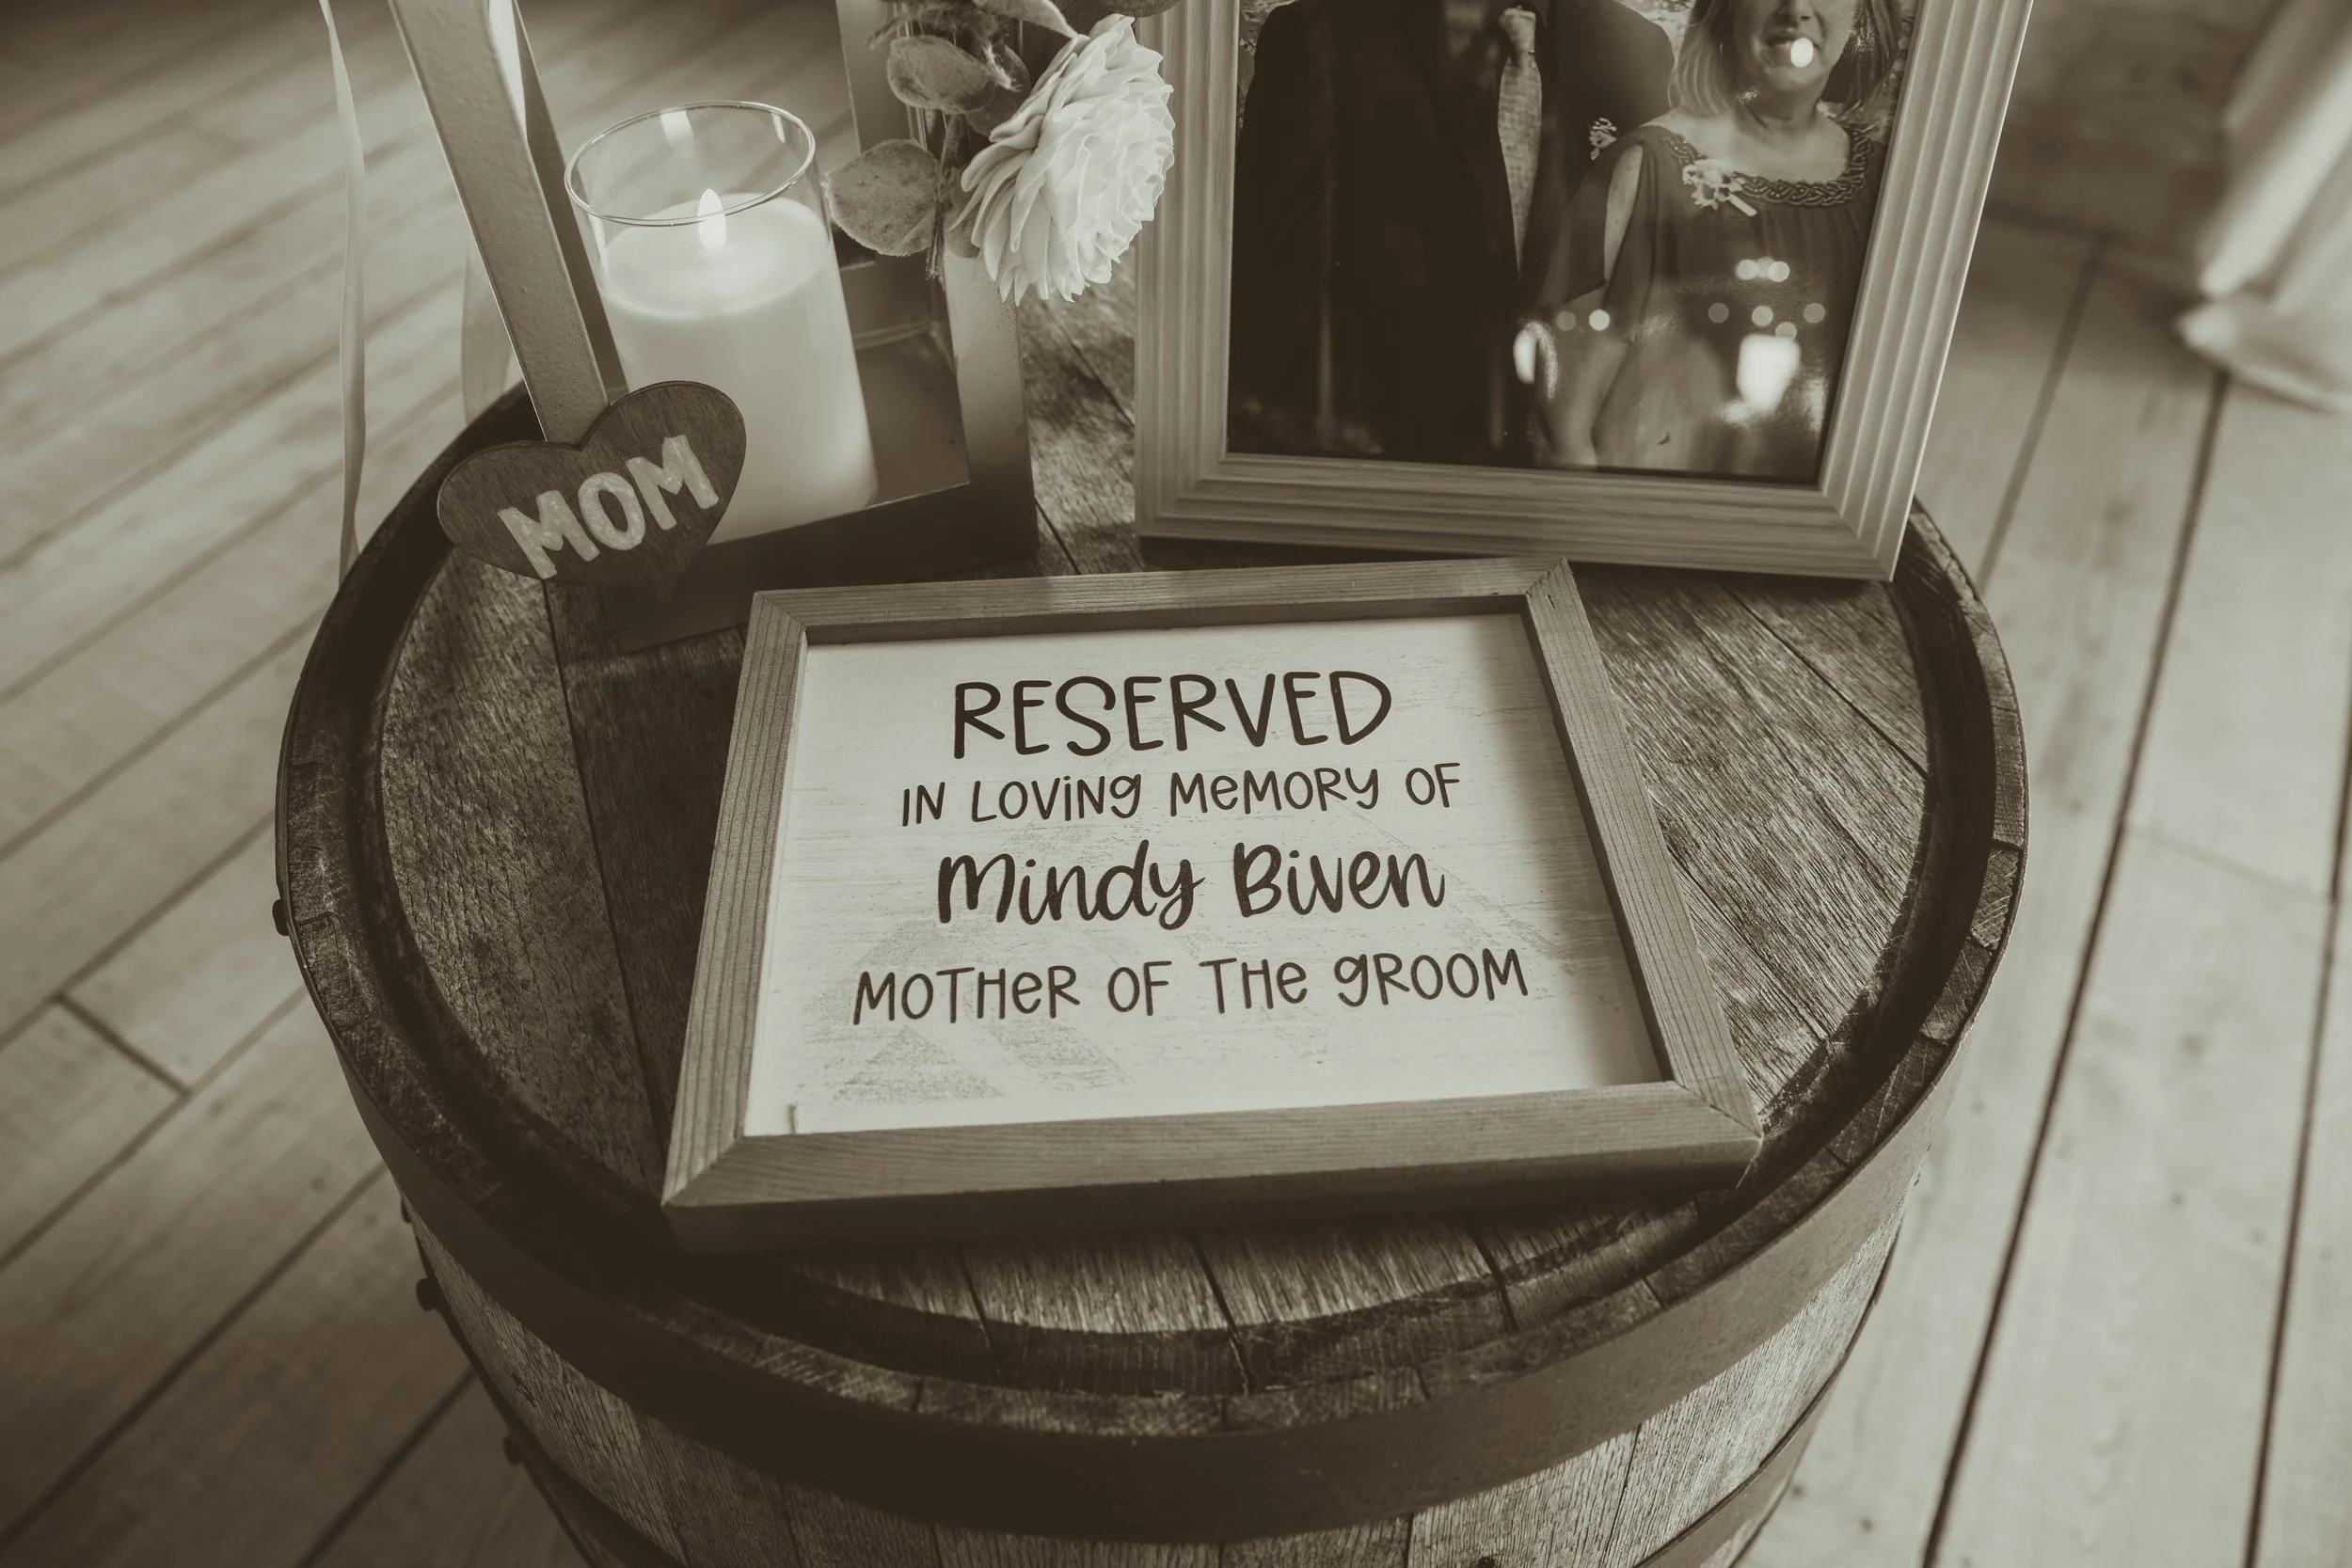 MOM
RESERVED
IN LOViNg MeMORy OF
Mindy Biven
MOTHeR OF THe gROOM